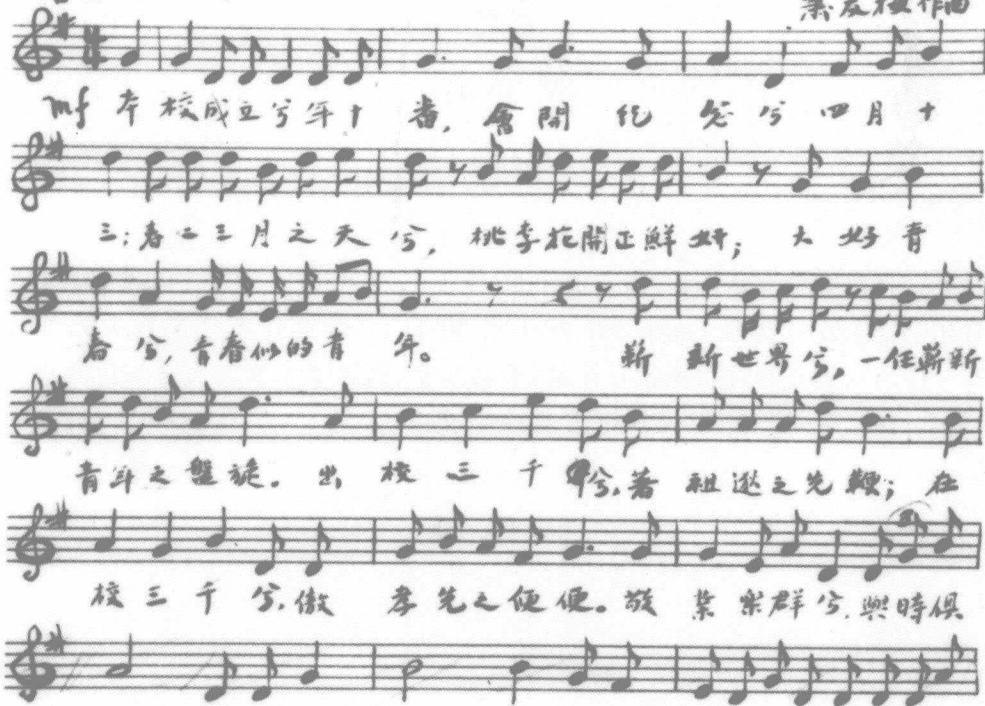 蕭友梅作曲
mf 本校成立兮年十番,會開紀兮四月十
三;春二三月之天兮,桃李花開正鮮妍;大好青
春兮,青春似的青年。 嶄新世界兮,一任嶄新
青年之盤旋。出校三千兮,著祖逖之先鞭;在
校三千兮,傲孝先之便便。敬業樂群兮,與時俱